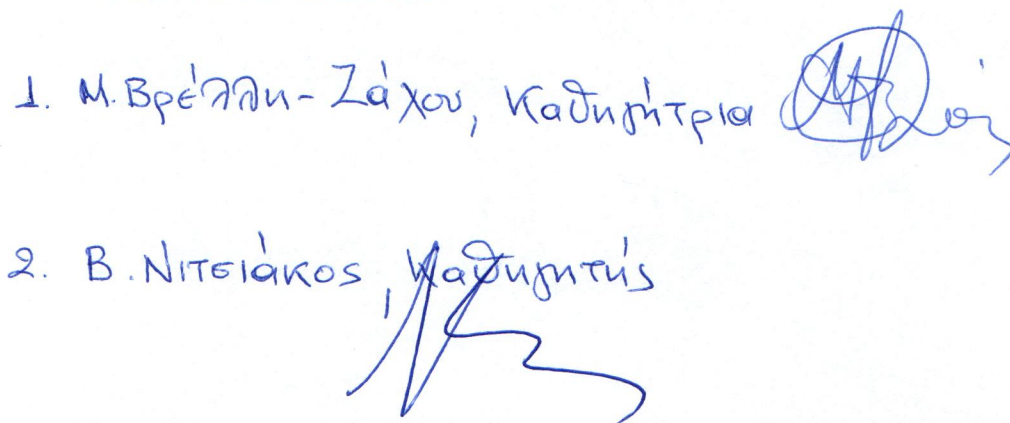 1. Μ. Βρέλλη-Ζάχου, Καθηγήτρια
2. Β. Νιτσιάκος, Καθηγητής